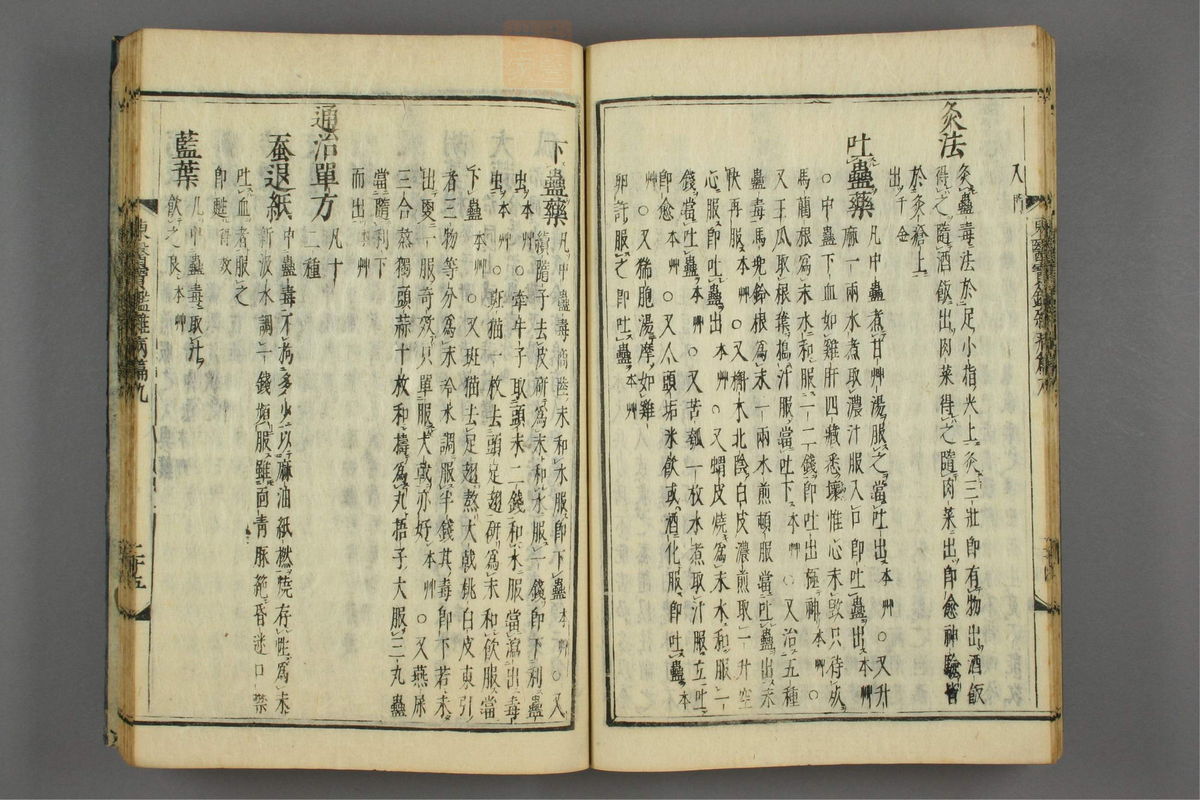 又門
灸法
灸蠱毒法於足小指尖上灸三壯即有物出酒飯
得之隨酒飯出肉菜得之隨肉菜出即愈神驗皆
於灸瘡上
出千金
吐蠱藥
凡中蠱煮甘艸湯服之當吐出本艸○又升
麻一兩水煮取濃汁服入口即吐蠱出本艸
○中蠱下血如雞肝四藏悉壞惟心未毀只待死
馬藺根爲末水和服一二錢即吐出極神本艸○
又王瓜取根葉搗汁服當吐下本艸○又治五種
蠱毒馬兜鈴根爲末一兩水煎頓服當吐蠱出未
快再服本艸○又槲木北陰白皮濃煎取一升空
心服即吐蠱出本艸○又蝟皮燒爲末水和服一
錢當吐蠱本艸○又苦瓠一枚水煮取汁服立吐
即愈本艸○又人頭垢米飲或酒化服即吐蠱本
艸○又猪胞湯摩如雞
卵許服之即吐蠱本艸
下蠱藥
凡中蠱毒商陸末和水服即下蠱本艸○又
續隨子去皮硏爲末和水服一錢即下利蠱
虫本艸○牽牛子取頭末二錢和水服當瀉出毒
虫本艸○斑猫一枚去頭足翅硏爲末和飲服當
下蠱本艸○又斑猫去足翅熬大戟桃白皮東引
者三物等分爲末冷水調服半錢其毒即下若未
出更一服奇效只單服大戟亦好本艸○又燕屎
三合熬獨頭蒜十枚和擣爲丸梧子大服三丸蠱
當隨利下
而出本艸
通治單方
凡十
二種
蚕退紙
中蠱毒不拘多少以麻油紙撚燒存性爲末
新汲水調一錢頻服雖面靑脈絶昏迷口噤
吐血者服之
即甦
藍葉
凡中蠱毒取汁
飮之良本艸
東醫寶鑑雜病篇九
二十五